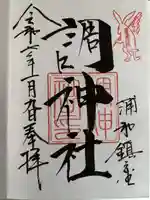 浦和鎮座
調神社
令和六年一月九日奉拝